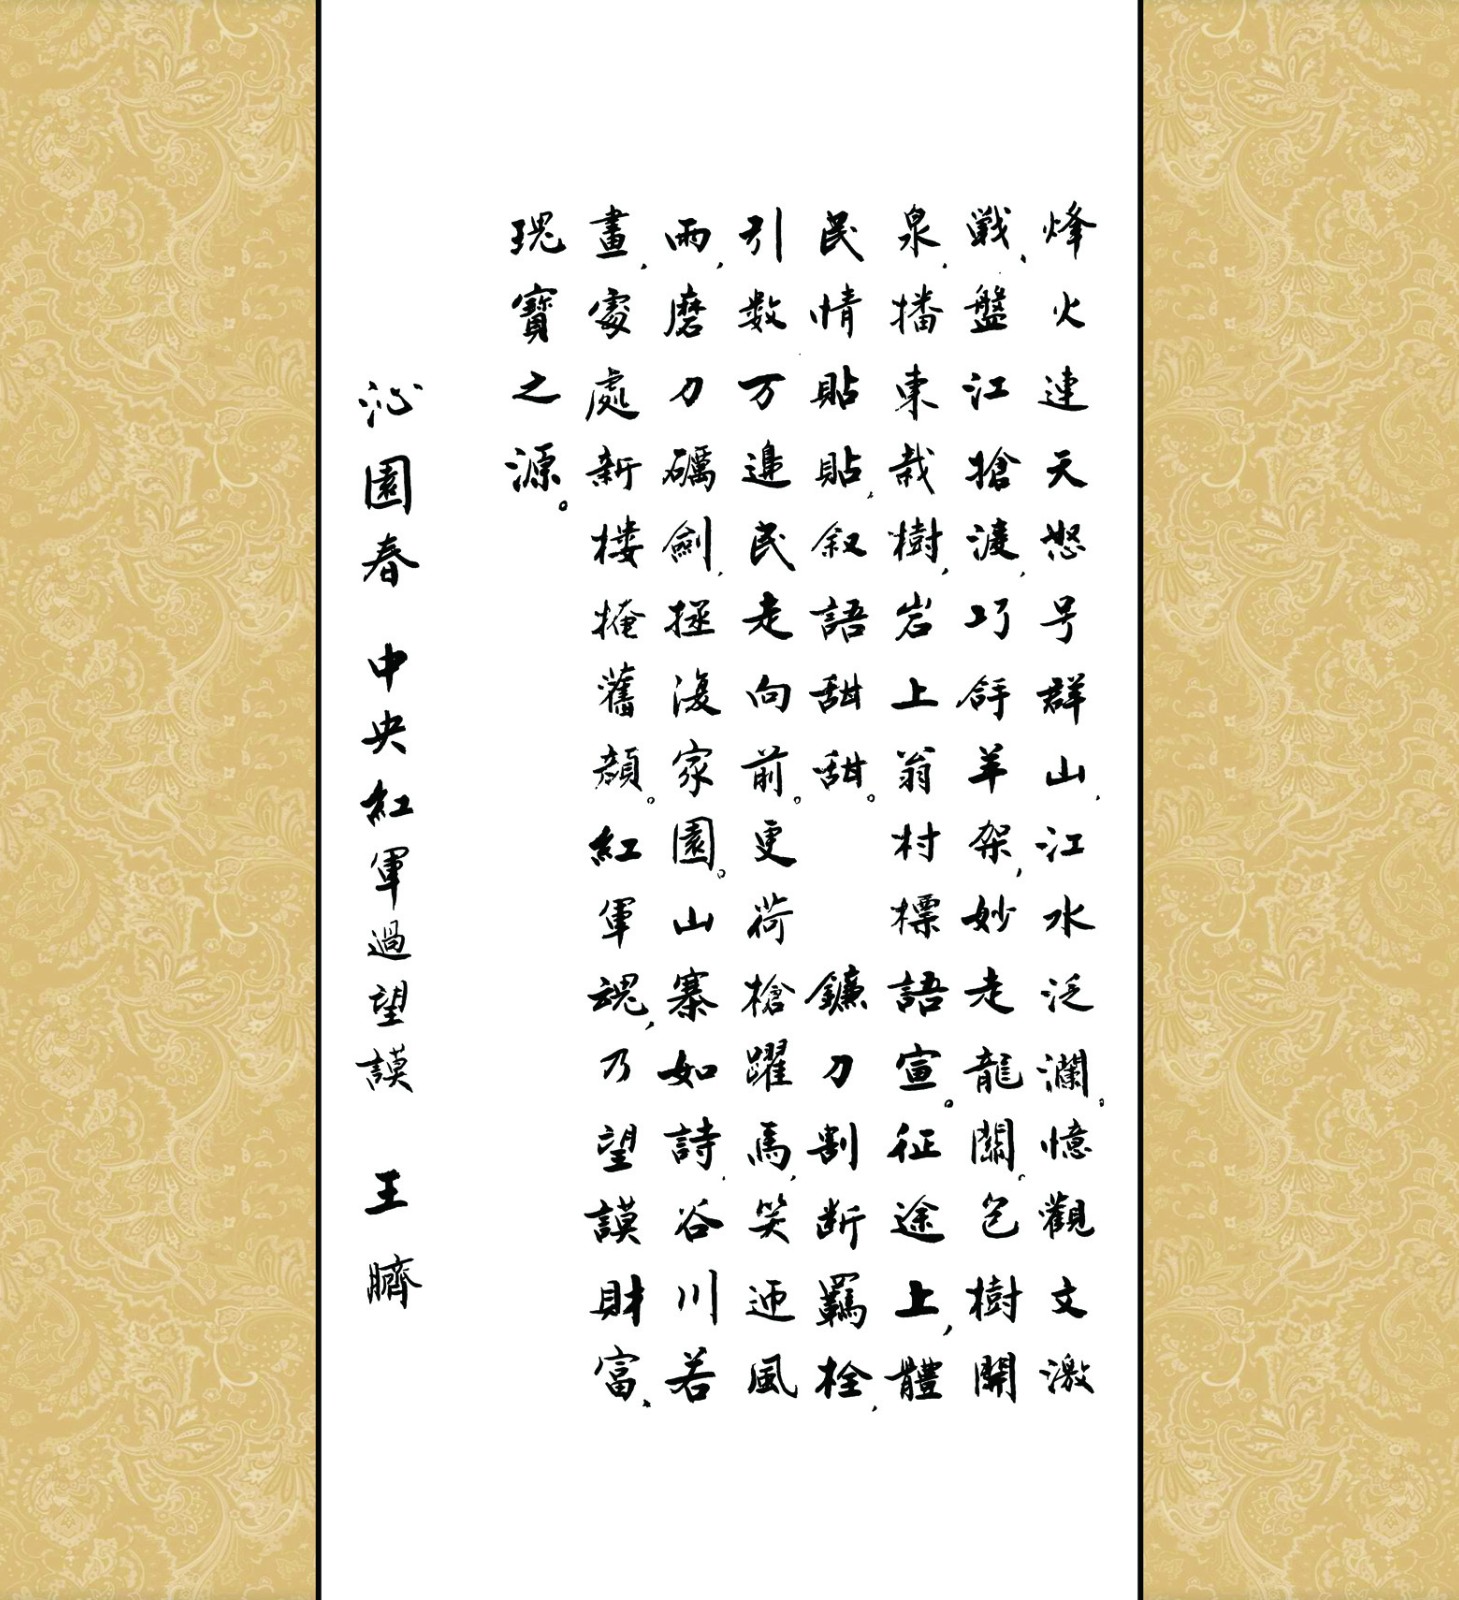 烽火連天怒号群山,江水泛瀾。憶觀文激
戦、盤江搶渡,巧舒羊架,妙走龍關。邑樹開
泉,播東栽樹,岩上翁村標語宣。征途上,體
民情貼貼,叙語甜甜。 鐮刀割断羈栓,
引数万邊民走向前。更荷槍躍馬,笑迎風
雨,磨刀礪劍,拯復家園。山寨如詩,谷川若
畫,處處新樓掩舊顔。紅軍魂,乃望謨財富、
瑰寶之源。
沁園春 中央紅軍過望謨 王臍